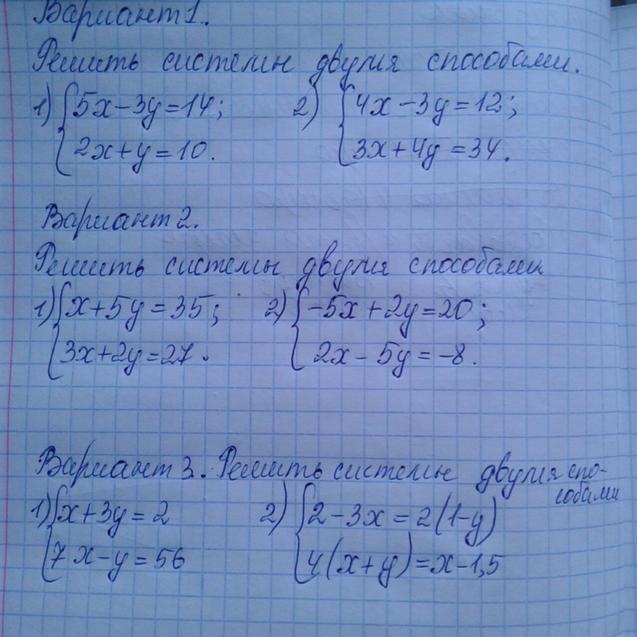 Вариант 1.
Решить системы двумя способами.
1) { 5x - 3y = 14; 2) { 4x - 3y = 12;
2x + y = 10. 3x + 4y = 34.
Вариант 2.
Решить системы двумя способами
1) { x + 5y = 35; 2) { -5x + 2y = 20;
3x + 2y = 27. 2x - 5y = -8.
Вариант 3. Решить системы двумя спо-
собами
1) { x + 3y = 2 2) { 2 - 3x = 2(1 - y)
7x - y = 56 4(x + y) = x - 1,5